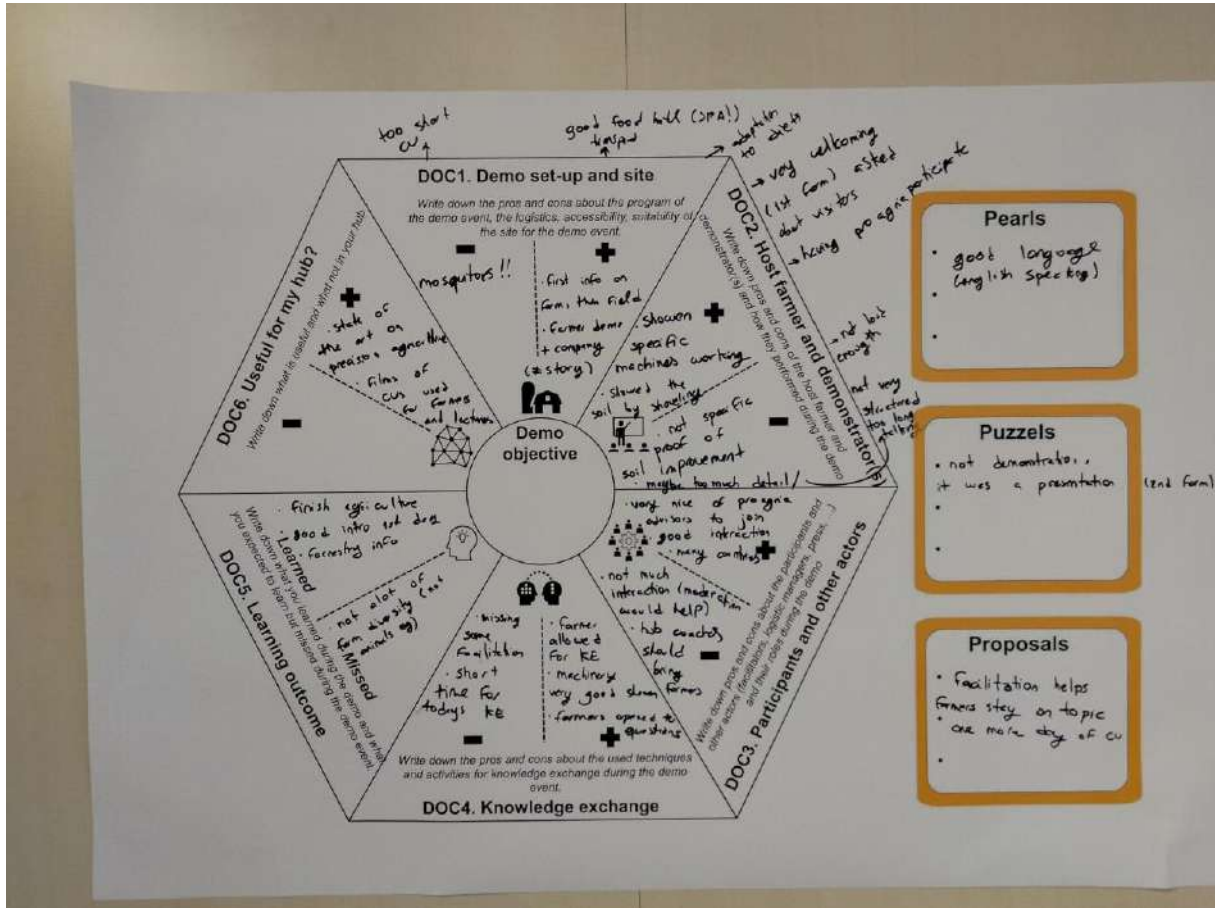 too short
CV
good food
transport
to diets
→ very wellcoming
(1st farm) asked
about visitors
→ having proagria participate
DOC1. Demo set-up and site
Write down the pros and cons about the program of
the demo event, the logistics, accessibility, suitability of
the site for the demo event.
mosquitors!!
• first info on
farm, then field
• farmer demo
+ company
(≠ story)
DOC2. Host farmer and demonstrator(s)
Write down pros and cons of the host farmer and
demonstrator(s) and how they performed during the demo
• showen
specific
machines working
• showed the
soil by shoveling
• not specific
proof of
soil improvement
• maybe too much detail/
→ not loud
enough
not very
structured
too long
talking
DOC3. Participants and other actors
Write down pros and cons about the participants and
other actors (facilitators, logistic managers, press, ...)
and their roles during the demo
• very nice of proagria
advisors to join
• good interaction
• many countries
• not much
interaction (moderation
would help)
• hub coaches
should
bring
farmers
DOC4. Knowledge exchange
Write down the pros and cons about the used techniques
and activities for knowledge exchange during the demo
event.
• missing
some
facilitation
• short
time for
todays KE
• farmer
allowed
for KE
• machinery
very good shown
• farmers opened to
questions
DOC5. Learning outcome
Write down what you learned during the demo and what
you expected to learn but missed during the demo event.
Learned
• finish agriculture
• good intro 1st day
• forrestry info
Missed
• not alot of
farm diversity
animals eg)
DOC6. Useful for my hub?
Write down what is useful and what not in your hub
• state of
the art on
precision agriculture
• films of
CVs used
for farmers
and lectures
Demo
objective
Pearls
• good language
(english speaking)
•
•
Puzzels
• not demonstration,
it was a presentation (2nd farm)
•
•
Proposals
• Facilitation helps
farmers stay on topic
• one more day of CV
•